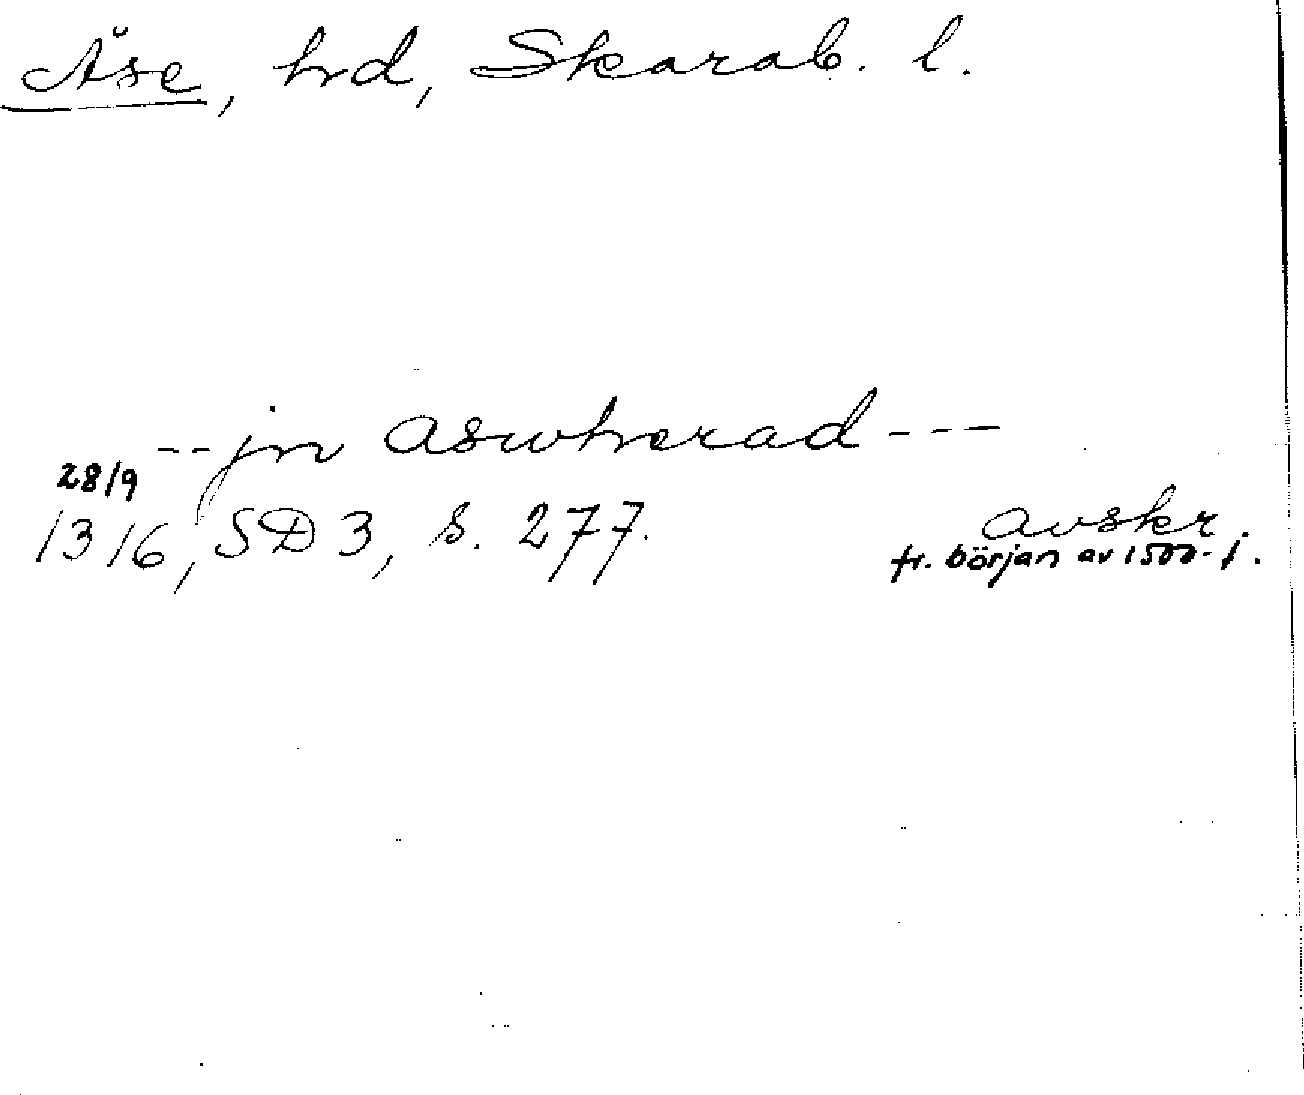 Åse, hd, Skarab. l.
--jn aswherad---
28/9
1316, SD 3, s. 277. avskr.
fr. början av 1500-t.